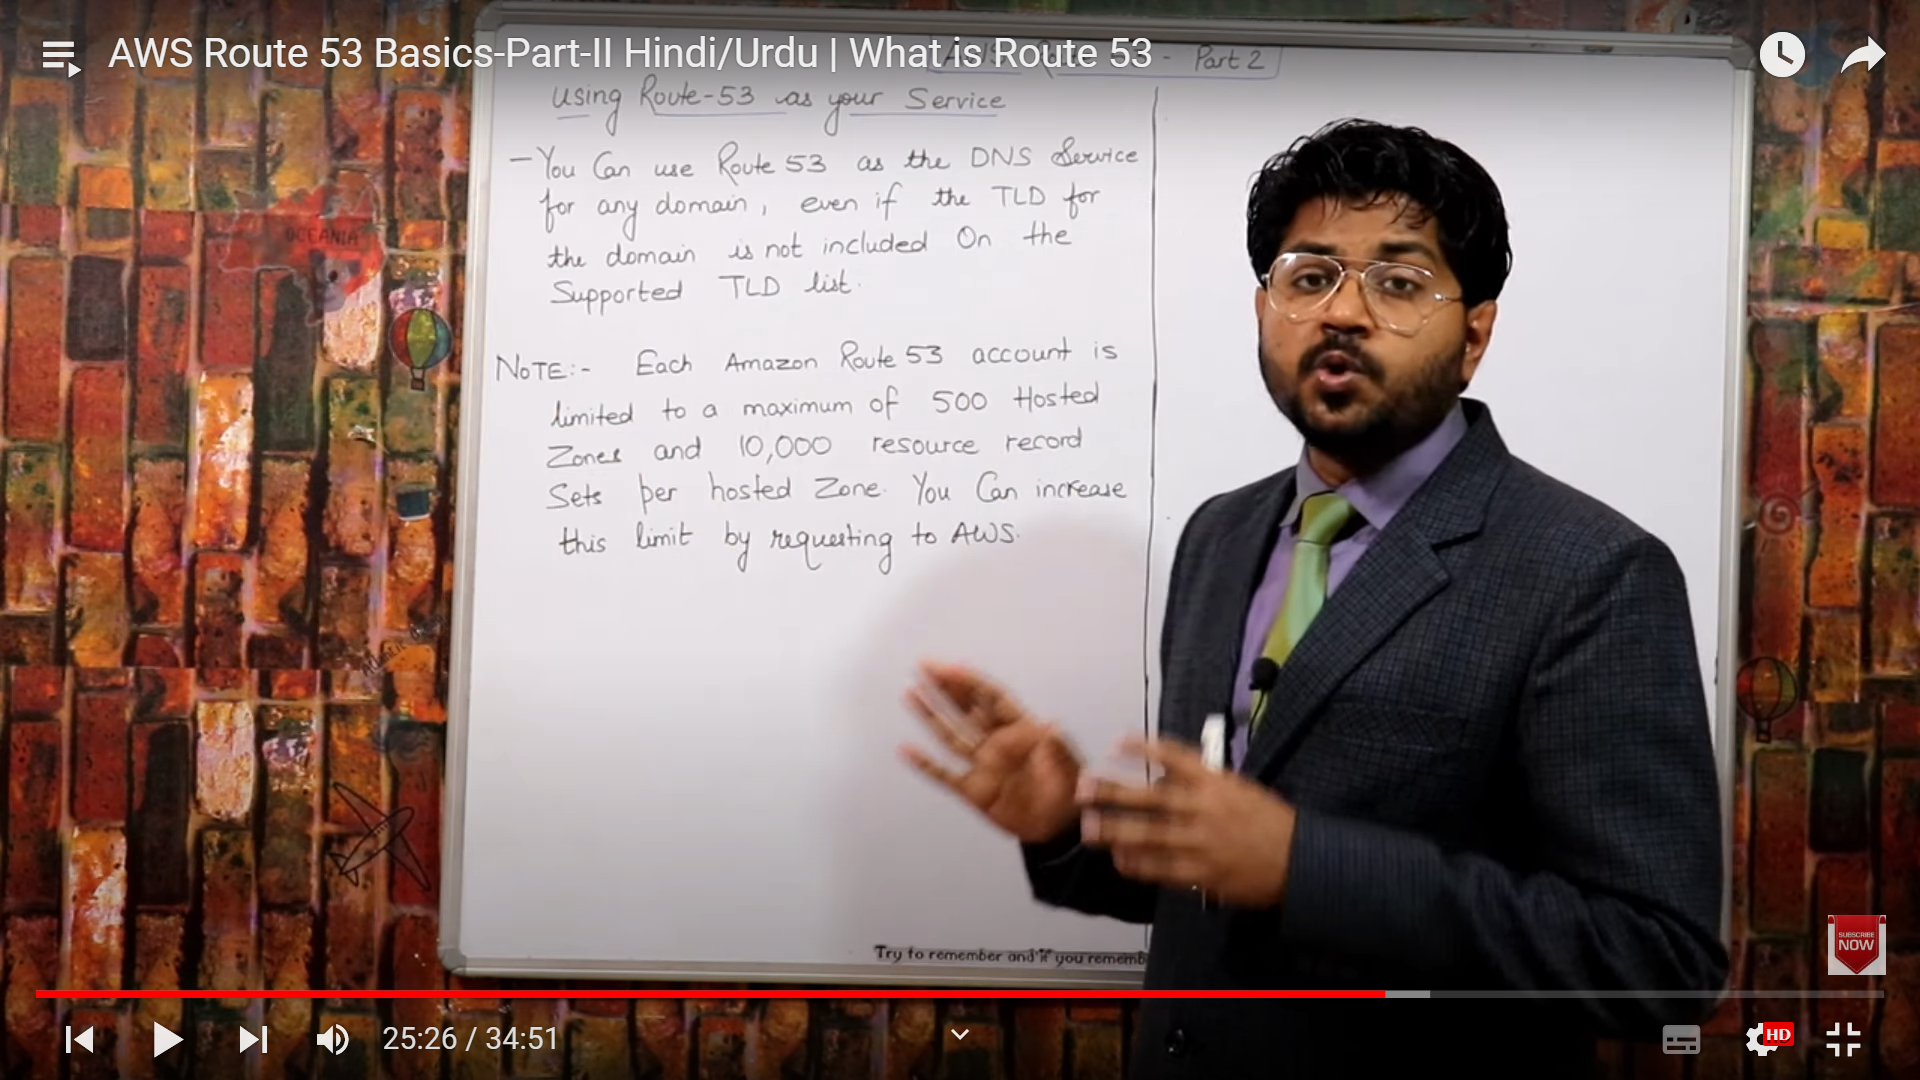 AWS Route 53 Basics-Part-II Hindi/Urdu | What is Route 53
Part 2
Using Route-53 as your Service
- You Can use Route 53 as the DNS Service
for any domain, even if the TLD for
the domain is not included On the
Supported TLD list.
NOTE:- Each Amazon Route 53 account is
limited to a maximum of 500 Hosted
Zones and 10,000 resource record
Sets per hosted Zone. You Can increase
this limit by requesting to AWS.
OCEANIA
Try to remember and if you rememb
SUBSCRIBE
NOW
25:26 / 34:51
HD